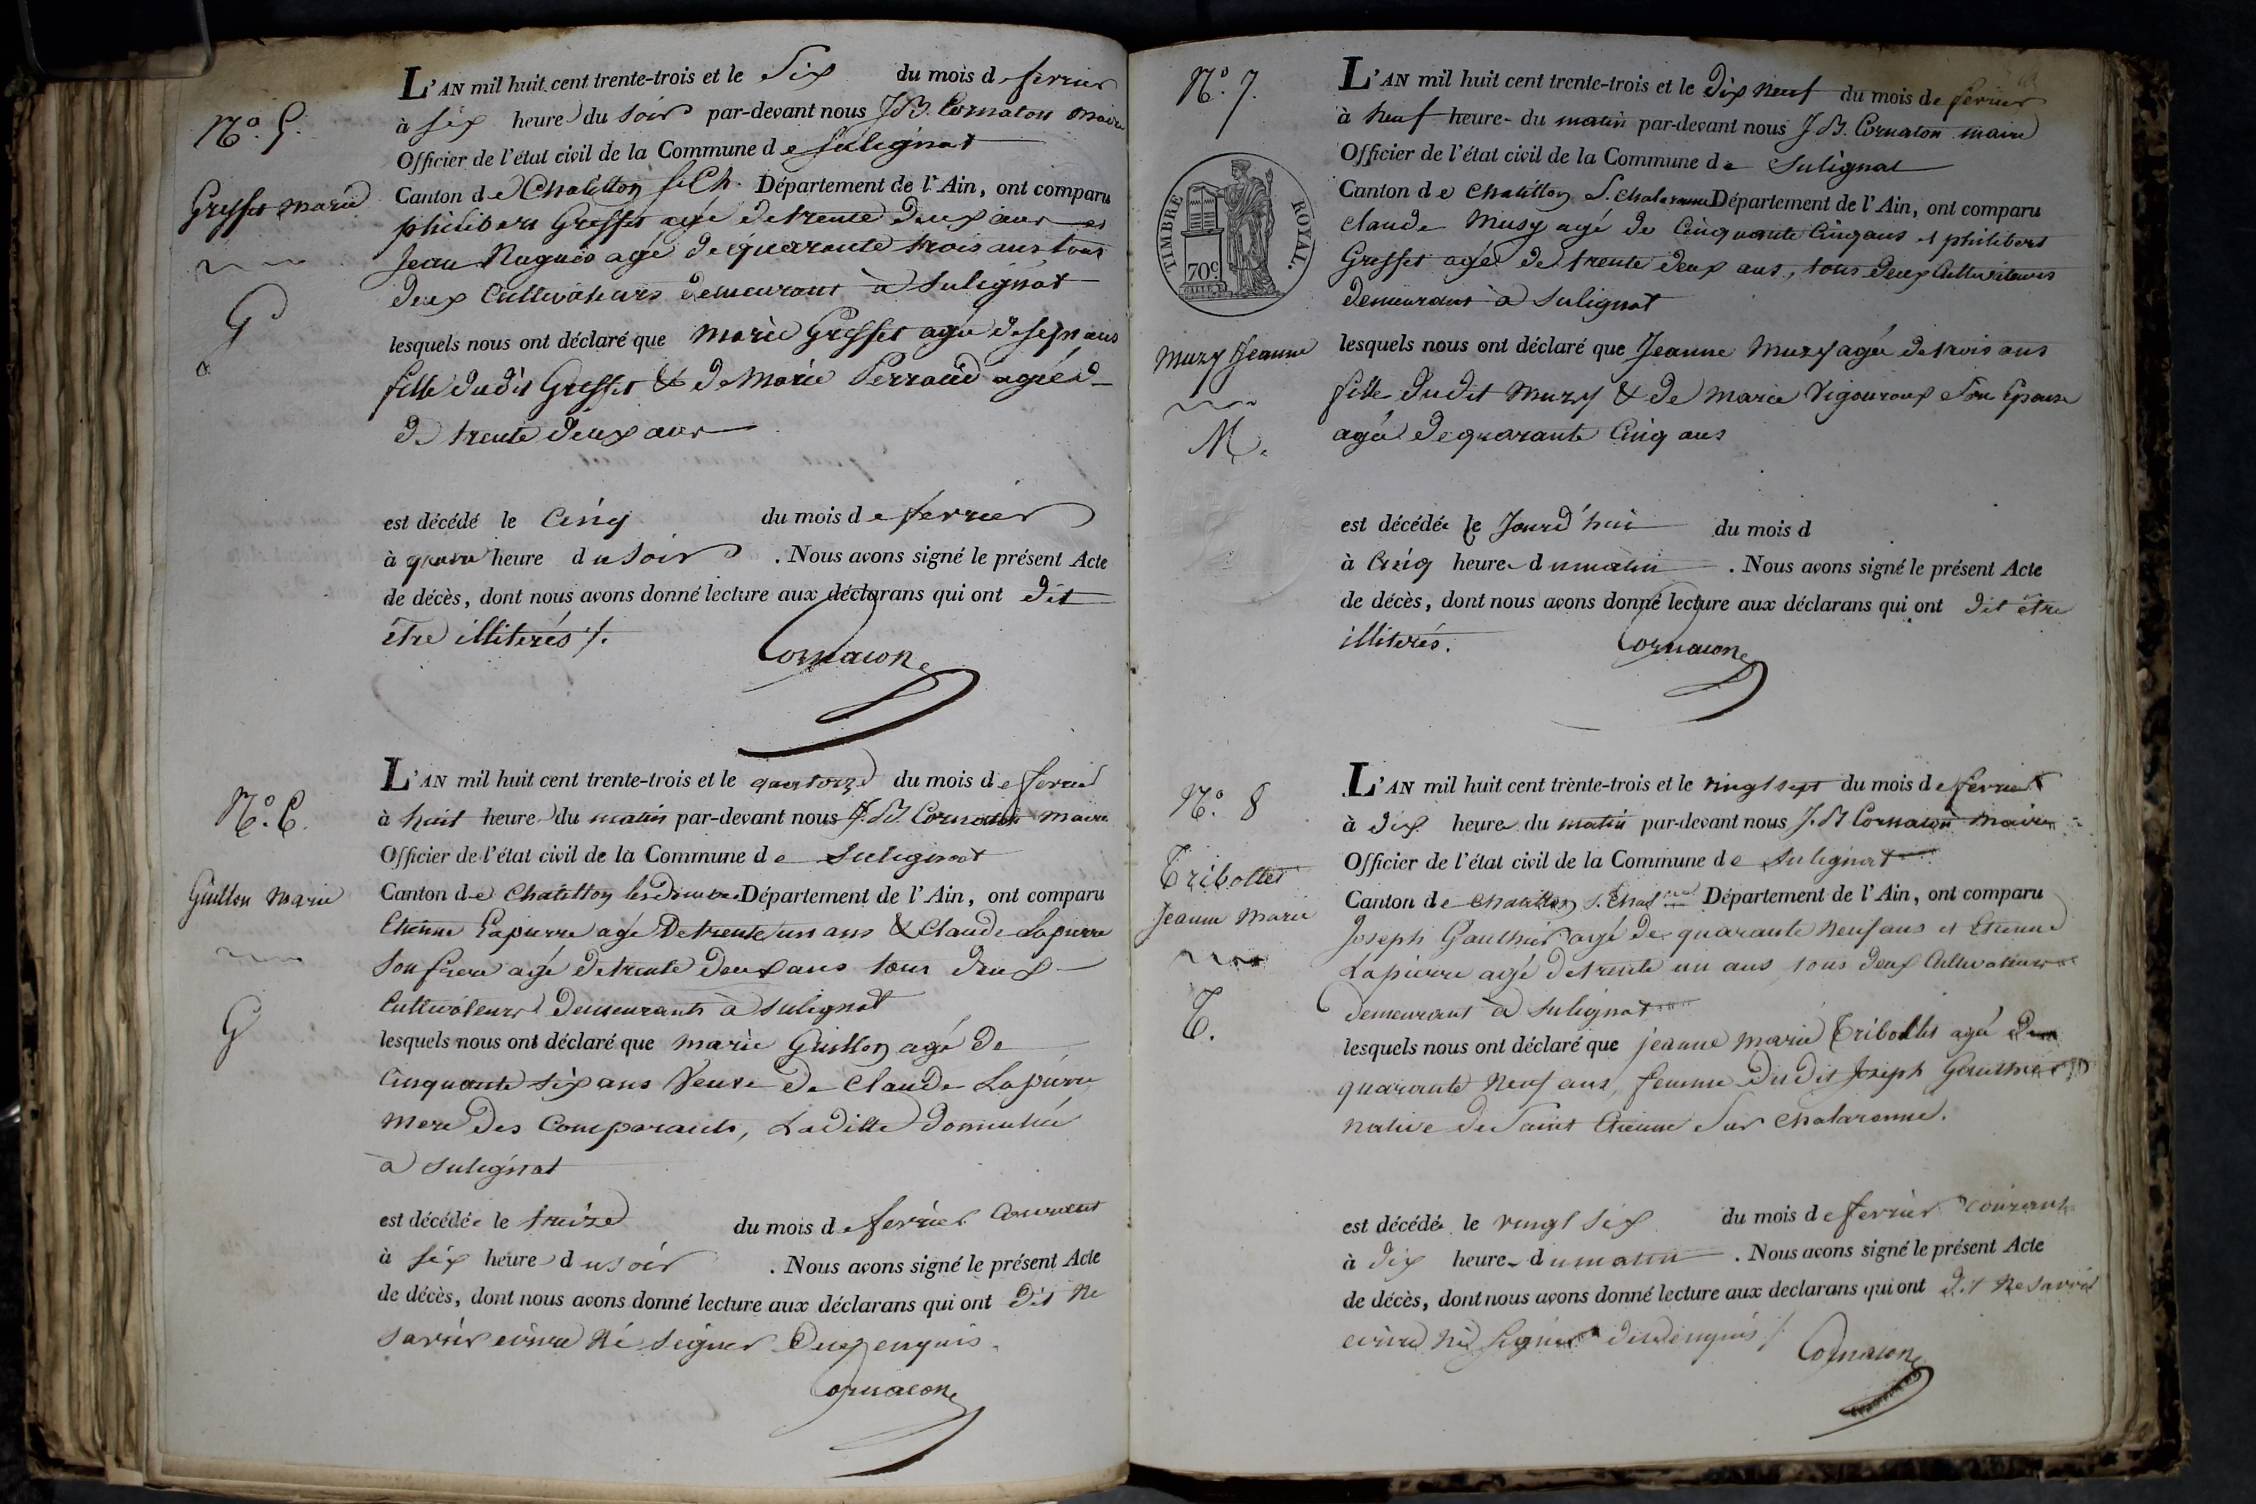 N.o 5.
Greffet marie
G
L'AN mil huit cent trente-trois et le Six du mois de fevrier
à six heure du soir par-devant nous J.B. Cornaton maire
Officier de l'état civil de la Commune de Sulignat
Canton de Chatillon s. Ch. Département de l'Ain, ont comparu
philibert Greffet agé de trente deux ans et
Jean Nugues agé de quarante trois ans tous
deux Cultivateurs demeurant à Sulignat
lesquels nous ont déclaré que marie Greffet agée de sept ans
fille dudit Greffet & de Marie Perraud agée
de trente deux ans
est décédé le Cinq du mois de fevrier
à heure du soir . Nous avons signé le présent Acte
de décès, dont nous avons donné lecture aux déclarans qui ont dit
être illiterés ./.
Cornaton
N.o 6.
Guillon marie
G
L'AN mil huit cent trente-trois et le quatorze du mois de fevrier
à huit heure du matin par-devant nous J.B. Cornaton maire
Officier de l'état civil de la Commune de Sulignat
Canton de Chatillon les Dombes Département de l'Ain, ont comparu
Etienne Lapierre agé De trente un ans & Claude Lapierre
son frere agé de trente Deux ans tous deux
Cultivateurs Demeurants à Sulignat
lesquels nous ont déclaré que marie Guillon agé de
Cinquante six ans Veuve de Claude Lapierre
mere Des Comparants, Laditte Domiciliée
à Sulignat
est décédée le treize du mois de fevrier Courant
à six heure du soir . Nous avons signé le présent Acte
de décès, dont nous avons donné lecture aux déclarans qui ont dit Ne
savoir ecrire Ni signer Deux enquis.
Cornaton
N.o 7.
TIMBRE ROYAL.
70c
Muzy Jeanne
M.
L'AN mil huit cent trente-trois et le dix neuf du mois de fevrier
à neuf heure du matin par-devant nous J B. Cornaton maire
Officier de l'état civil de la Commune de Sulignat
Canton de Chatillon S. Chalaronne Département de l'Ain, ont comparu
Claude Musy agé de Cinquante Cinq ans et philibert
Greffet agé de trente deux ans, tous deux Cultivateurs
demeurant à Sulignat
lesquels nous ont déclaré que Jeanne Muzy agée de trois ans
fille dudit Muzy & de marie Vigouroux son Epouse
agée de quarante Cinq ans
est décédée le Jourd'hui du mois d
à Cinq heure du matin . Nous avons signé le présent Acte
de décès, dont nous avons donné lecture aux déclarans qui ont dit être
illiterés.
Cornaton
N.o 8
Tribollet
Jeanne Marie
T.
L'AN mil huit cent trente-trois et le vingt sept du mois de fevrier
à dix heure du matin par-devant nous J. B Cornaton maire
Officier de l'état civil de la Commune de Sulignat
Canton de Chatillon S. Chal.ne Département de l'Ain, ont comparu
Joseph Gauthier agé de quarante Neuf ans et Etienne
Lapierre agé de trente un ans tous deux Cultivateurs
demeurant à Sulignat
lesquels nous ont déclaré que jeanne marie Tribollet agé De
quarante Neuf ans, femme dudit Joseph Gauthier
native de Saint Etienne Sur Chalaronne.
est décédé le vingt six du mois de fevrier courant
à dix heure du matin . Nous avons signé le présent Acte
de décès, dont nous avons donné lecture aux declarans qui ont dit Ne savoir
ecrire Ni signer
Cornaton